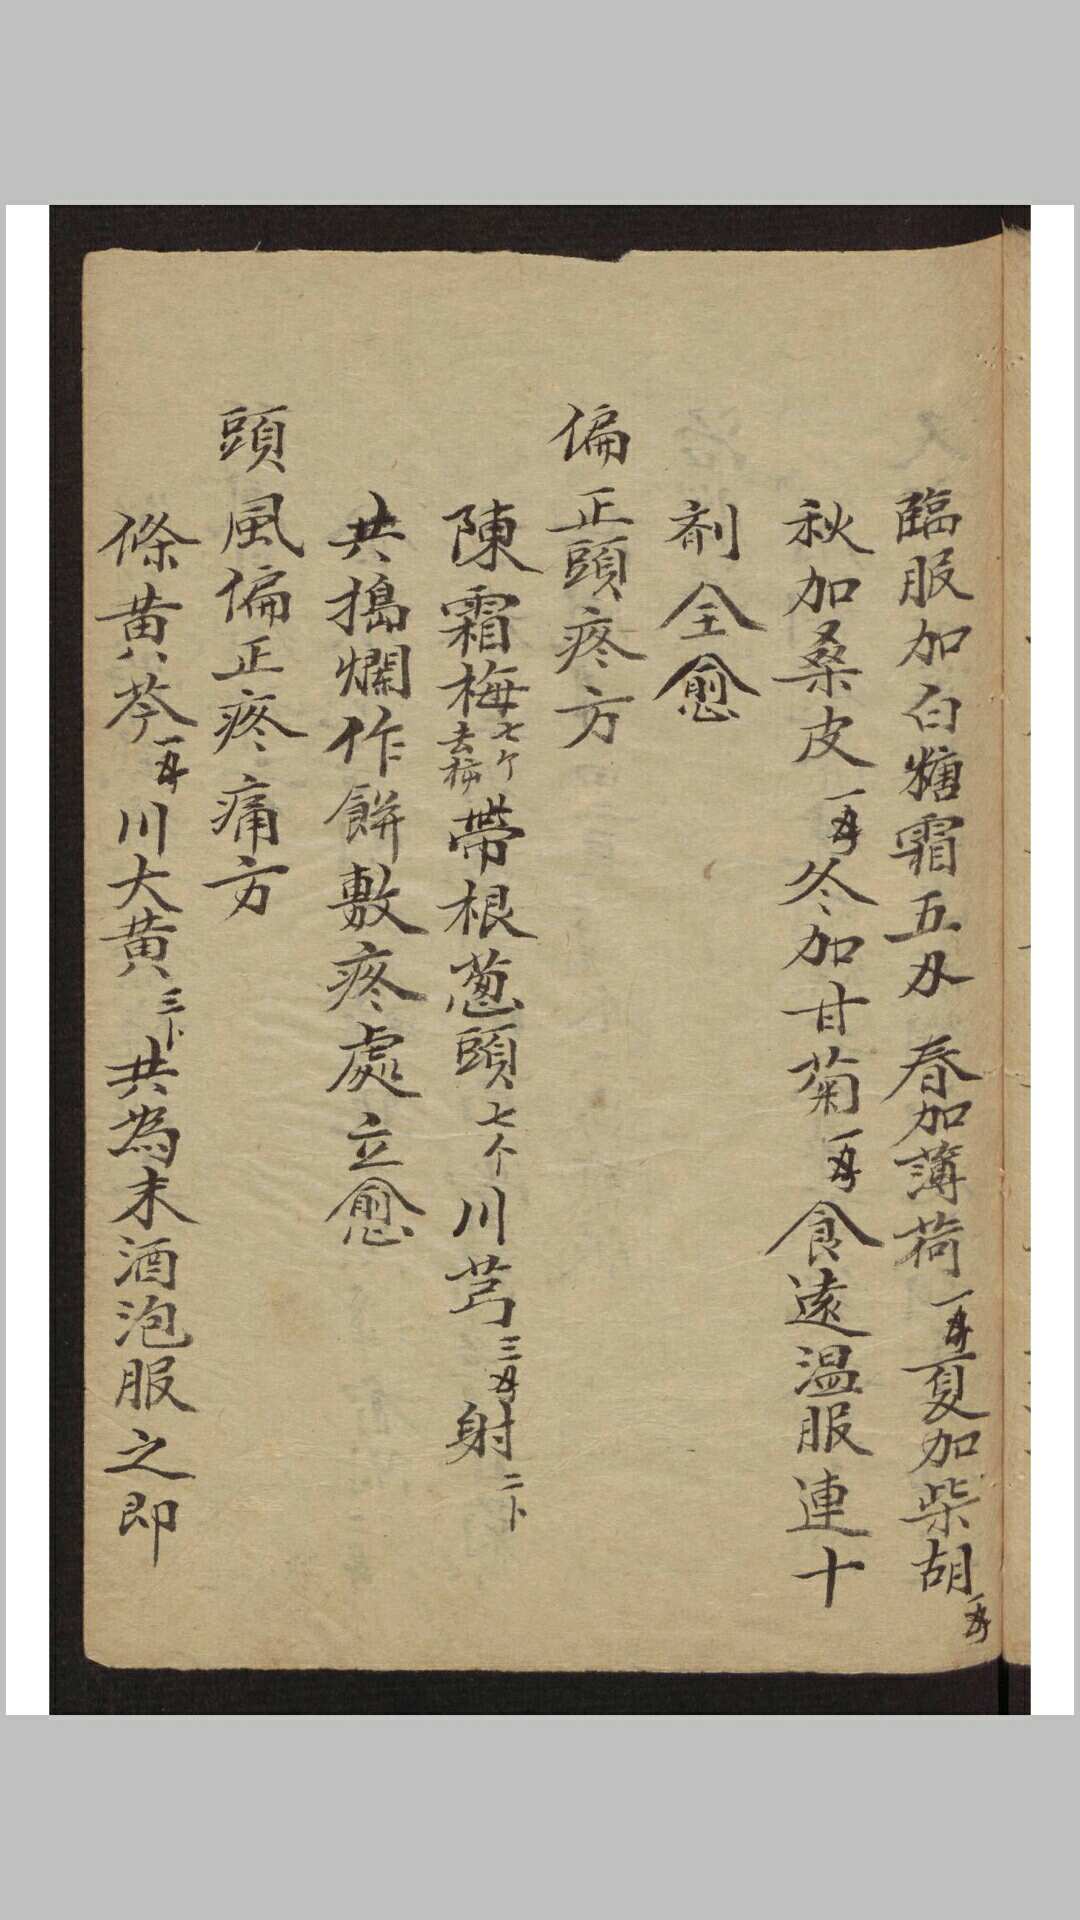 臨服加白糖霜五分春加薄荷一錢夏加柴胡一錢
秋加桑皮一錢冬加甘菊一錢食遠温服連十
劑全愈
偏正頭疼方
陳霜梅七个去核帶根葱頭七个川芎三錢射二卜
共搗爛作餅敷疼處立愈
頭風偏正疼痛方
條黄芩一錢川大黄三卜共為末酒泡服之即